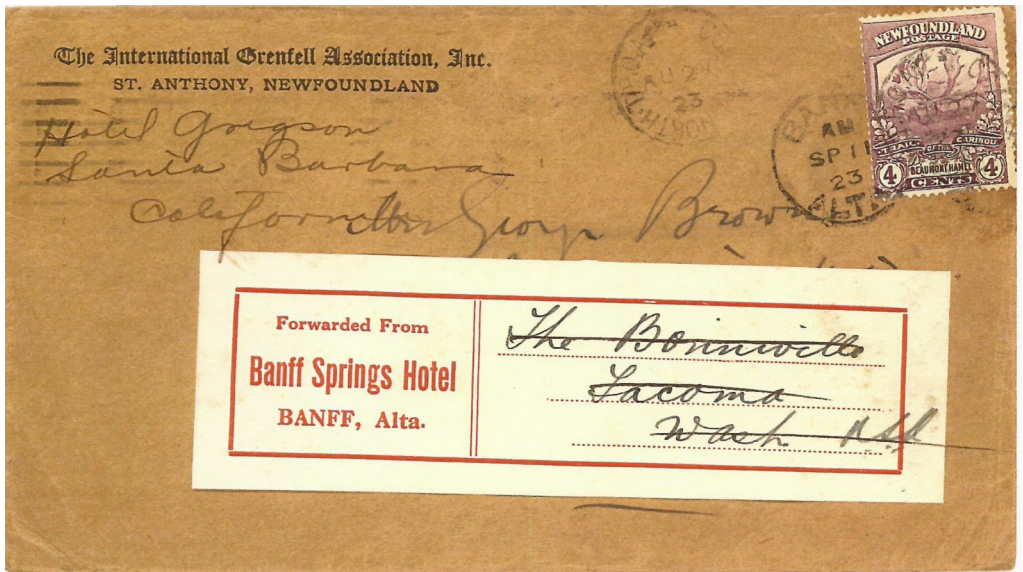 The International Grenfell Association, Inc.
ST. ANTHONY, NEWFOUNDLAND
Hotel Gregson
Santa Barbara
California
George Brown
AU 27
23
NORTH
BANFF
AM
SP 11
23
ALTA
NEWFOUNDLAND
POSTAGE
TRAIL OF THE CARIBOU
BEAUMONT HAMEL
4 CENTS 4
Forwarded From
Banff Springs Hotel
BANFF, Alta.
The Bonniville
Tacoma
Wash